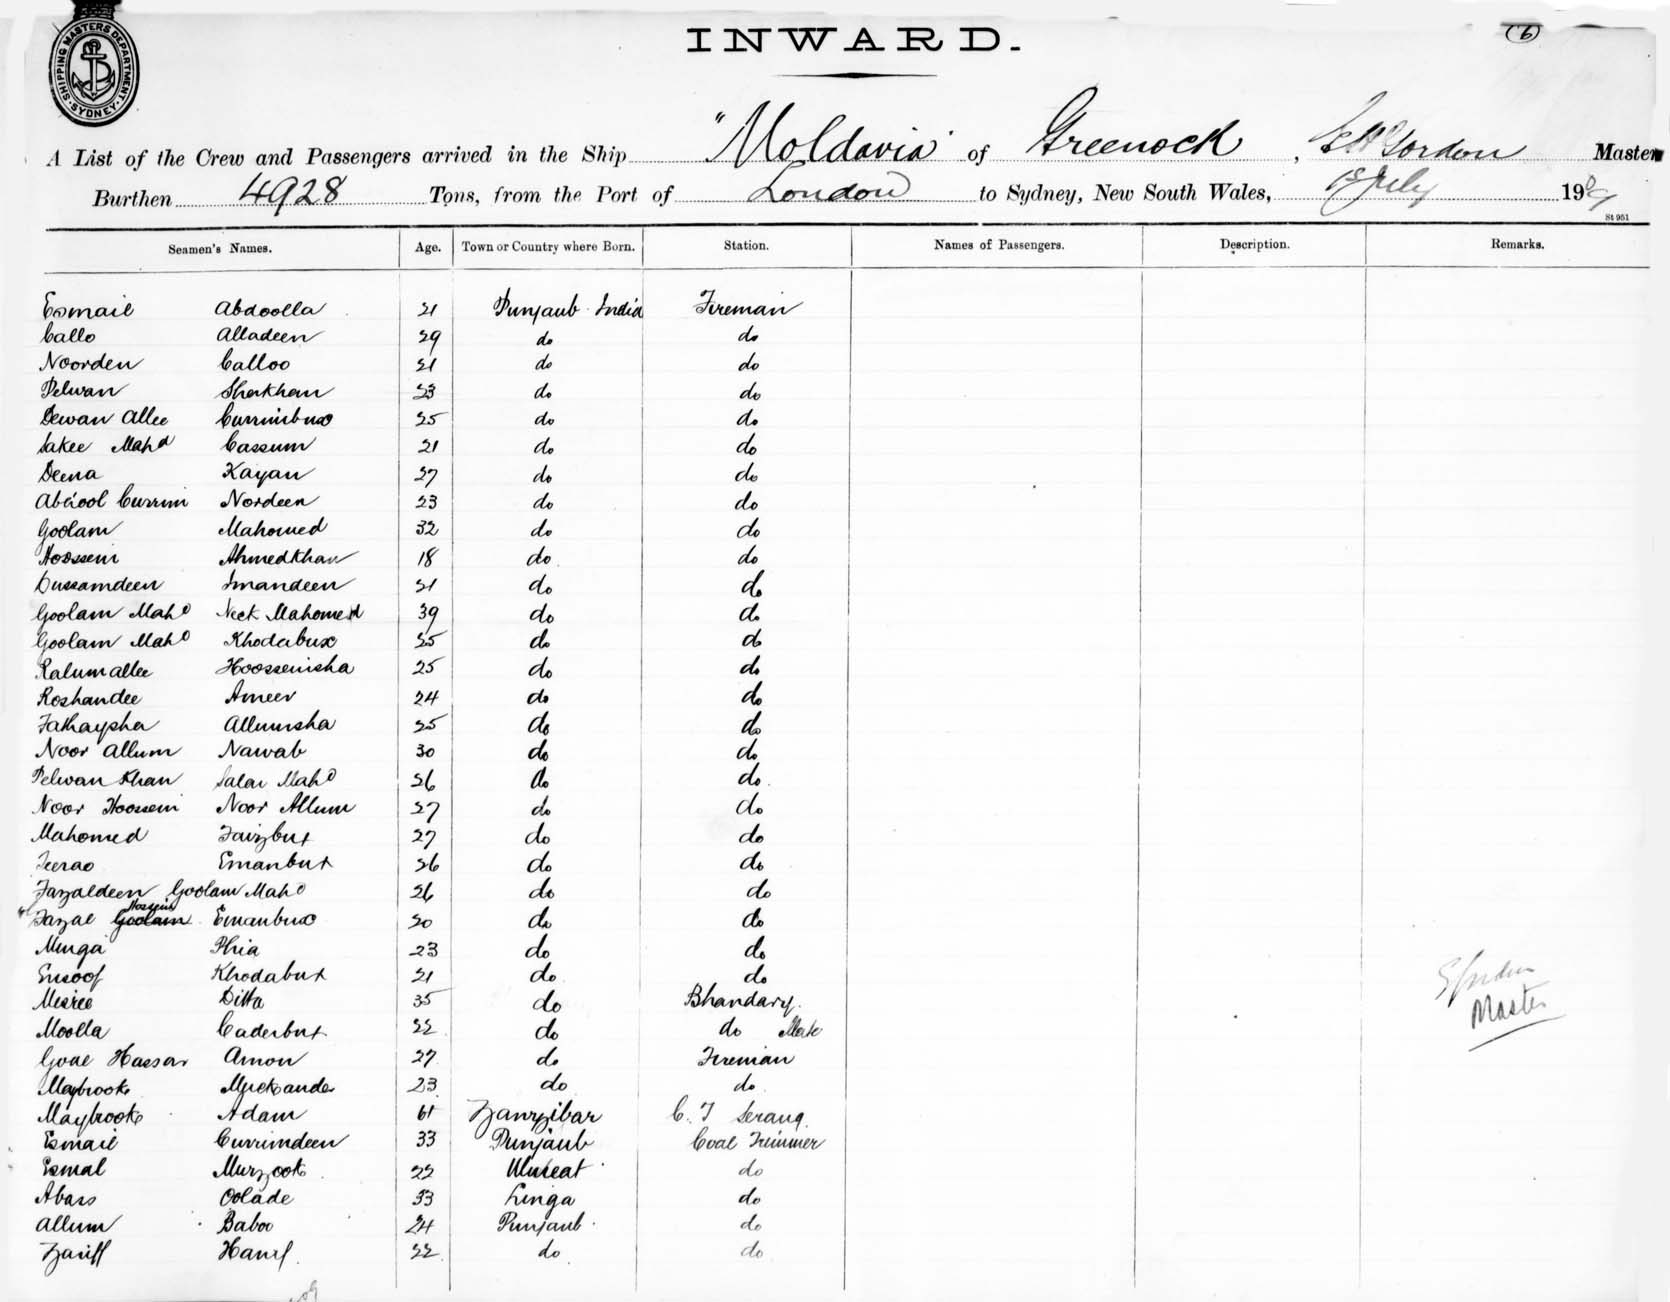 SHIPPING MASTERS DEPARTMENT. SYDNEY.
(6)
INWARD.
A List of the Crew and Passengers arrived in the Ship "Moldavia" of Greenock, Gordon Master
Burthen 4928 Tons, from the Port of London to Sydney, New South Wales, 1st July 1909
St 951
Seamen's Names. Age. Town or Country where Born. Station. Names of Passengers. Description. Remarks.
Esmail Abdoolla 21 Punjaub India Fireman
Callo Alladeen 29 do do
Noorden Calloo 21 do do
Pelwan Sherkhan 23 do do
Dewan Allee Currimbux 25 do do
Sakee Mahd Cassum 21 do do
Deena Kayan 27 do do
Abdool Currim Nordeen 23 do do
Goolam Mahomed 32 do do
Hoossein Ahmedkhan 18 do do
Dussamdeen Imandeen 21 do do
Goolam Mahd Neek Mahomed 39 do do
Goolam Mahd Khodabux 25 do do
Ralumallee Hoosseinsha 25 do do
Roshandee Ameer 24 do do
Fathaysha Allumsha 25 do do
Noor Allum Nawab 30 do do
Pelwan Khan Salar Mahd 26 do do
Noor Hoossein Noor Allum 27 do do
Mahomed Faizbux 27 do do
Feerao Emanbux 26 do do
Fazaldeen Goolam Mahd 26 do do
Hossein
Fazal Goolam Emanbux 20 do do
Munga Phia 23 do do
Eusoof Khodabux 21 do do
Misree Ditta 35 do Bhandary
Moolla Caderbux 22 do do Mate
Goal Hassan Amon 27 do Fireman
Maybrook 23 do do
Maybrook Adam 61 Zanzibar C. T Serang
Esmail Currimdeen 33 Punjaub Coal Trimmer
Esmal Murzook 22 Muscat do
Abass Oolade 33 Linga do
Allum Baboo 24 Punjaub do
Zariff Hanif 22 do do
Gordon
Master